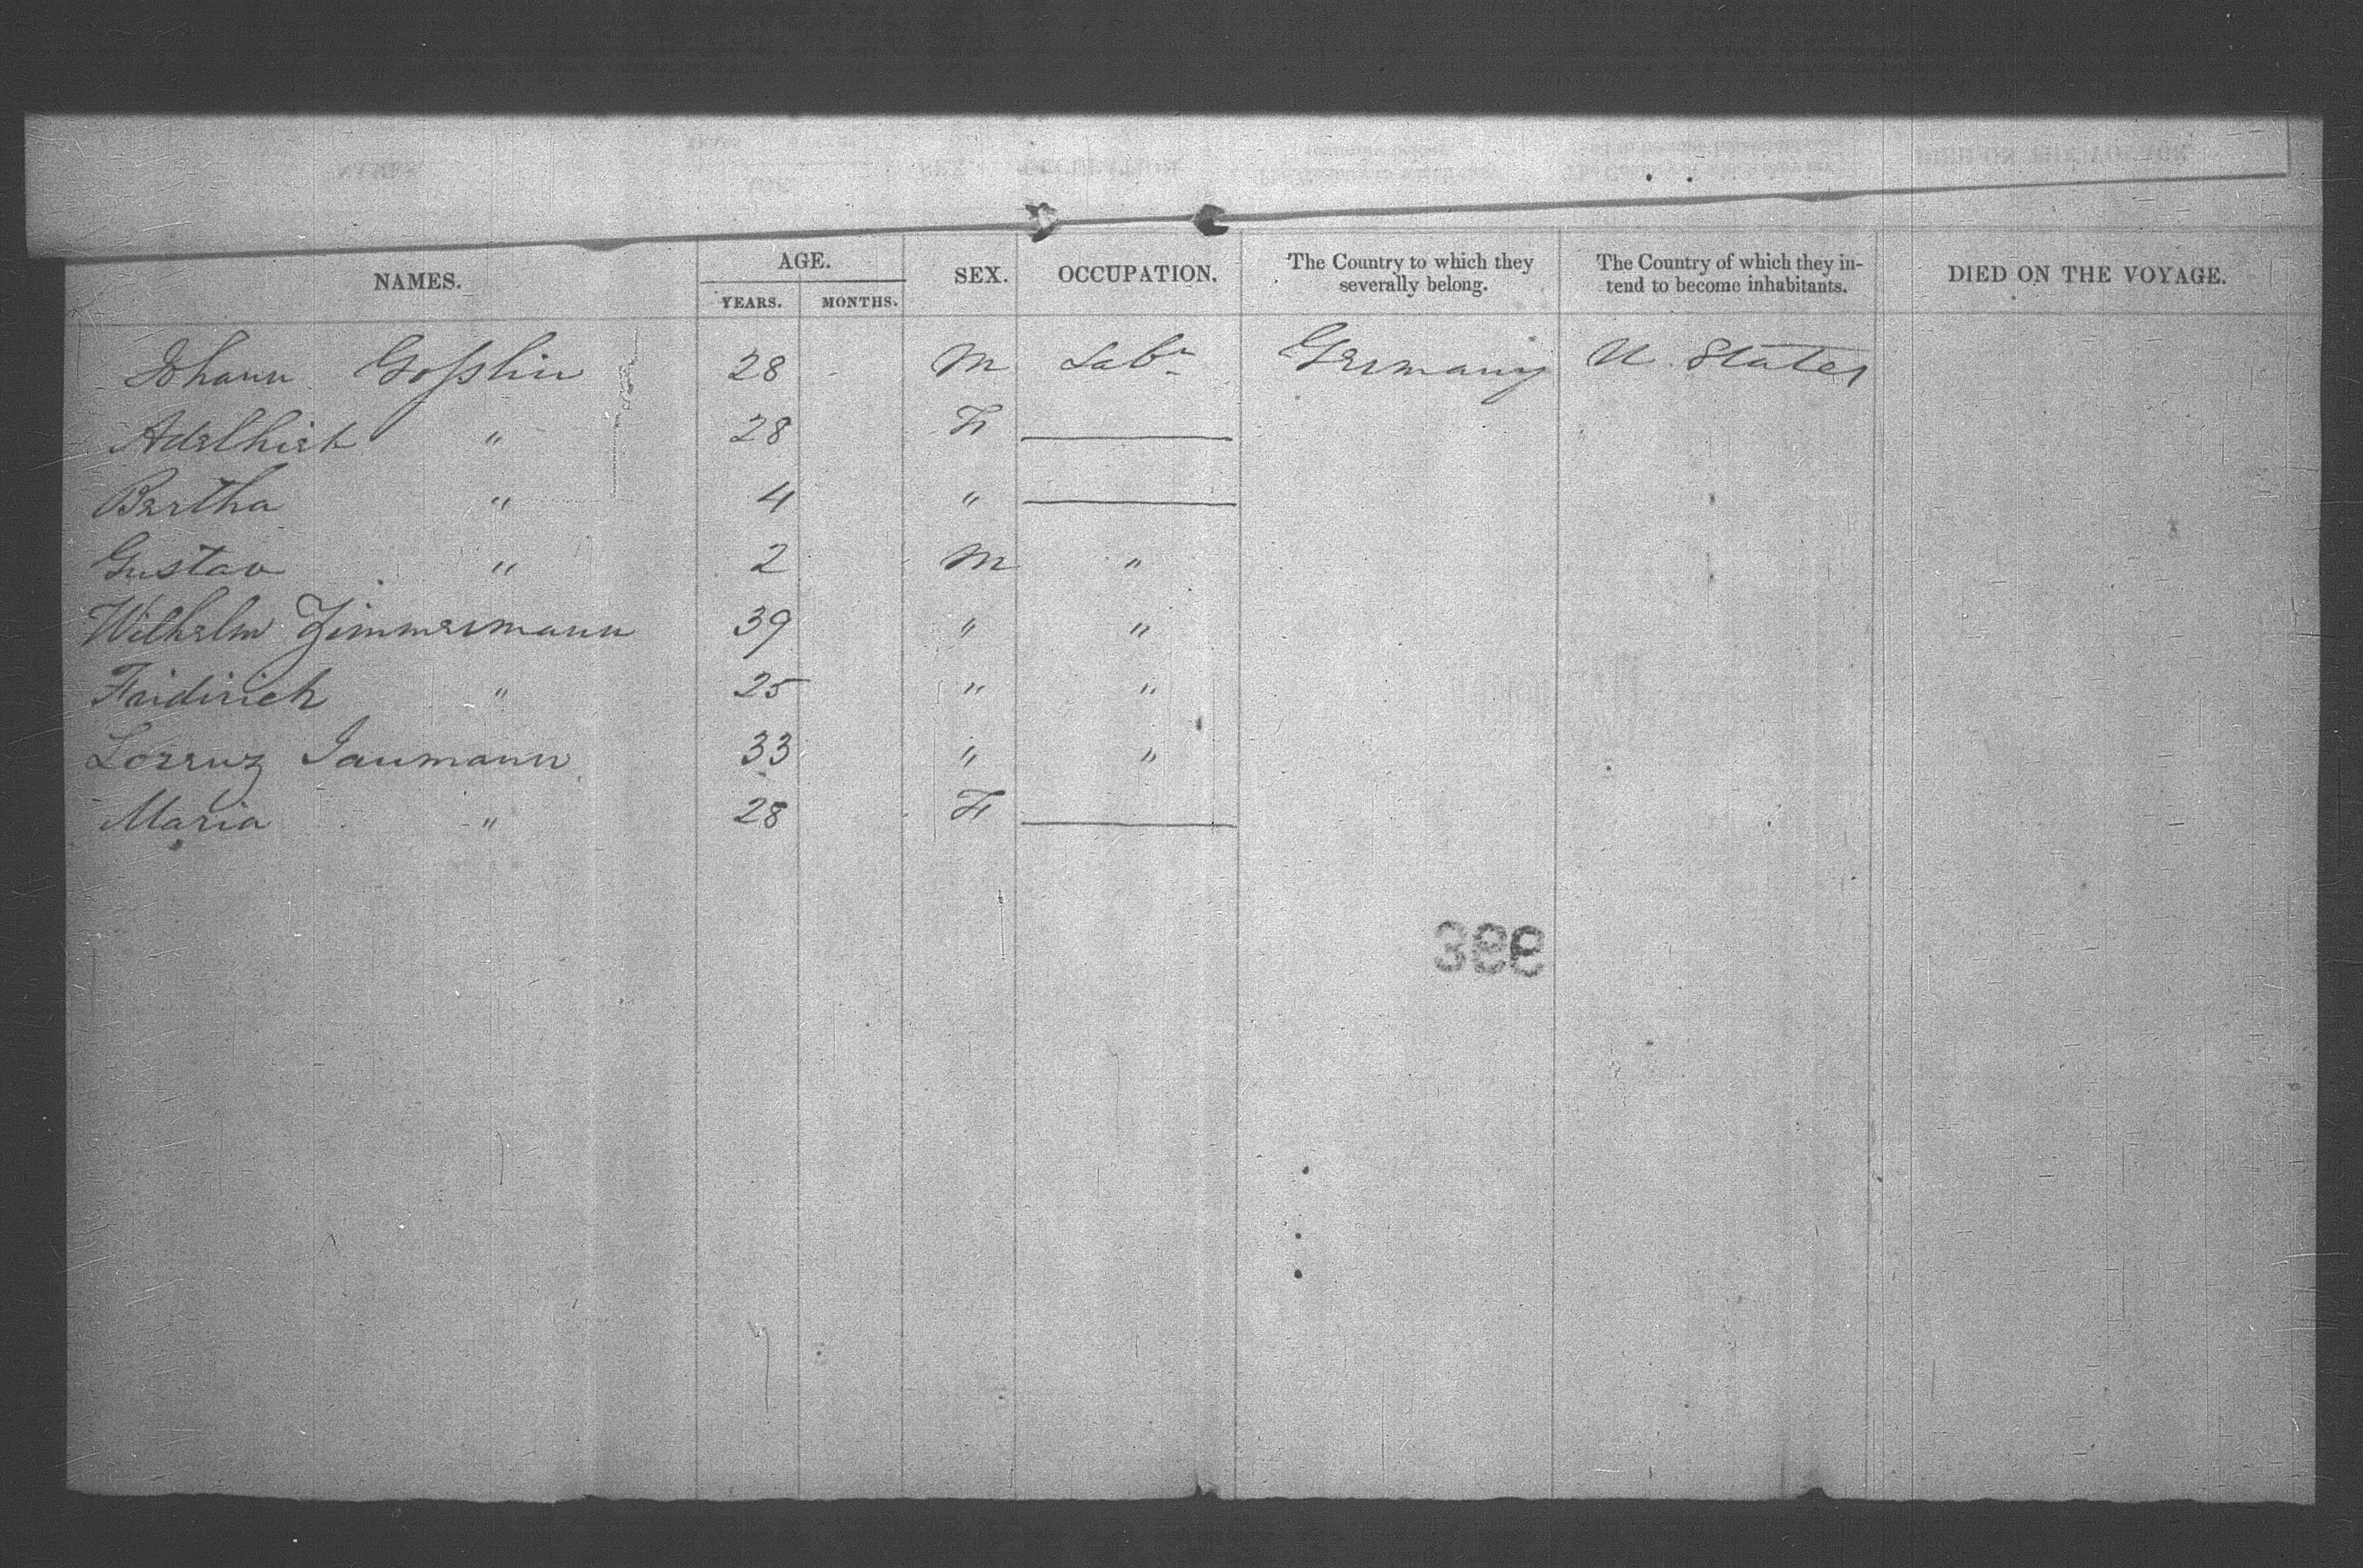 NAMES. AGE. SEX. OCCUPATION. The Country to which they severally belong. The Country of which they in- tend to become inhabitants. DIED ON THE VOYAGE.
YEARS. MONTHS.
Johann Gosslin 28 M Labr Germany U. States
Adelhiet " 28 F
Bertha " 4 "
Gustav " 2 M "
Wilhelm Zimmermann 39 " "
Fridirich " 25 " "
Lorenz Jaumann 33 " "
Maria " 28 F
399